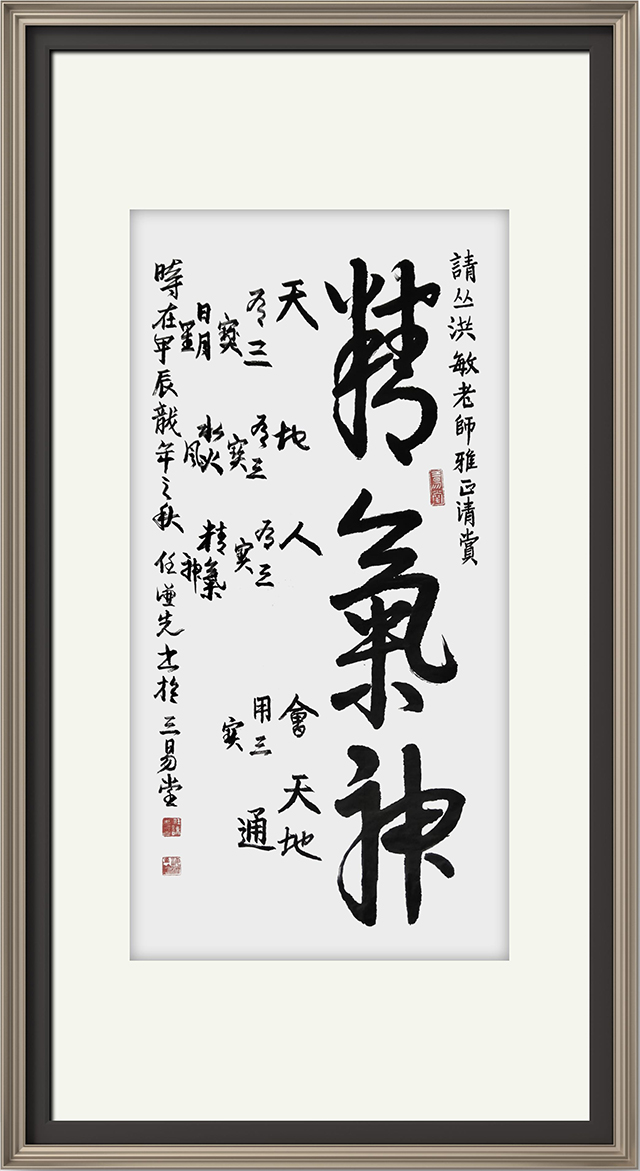 請丛洪敏老師雅正清賞
精氣神
天
有三
寶
日月
星
地
有三
寶
水火
風
人
有三
寶
精氣
神
會
用三
寶
天地
通
時在甲辰龍年之秋 任先书於三易堂